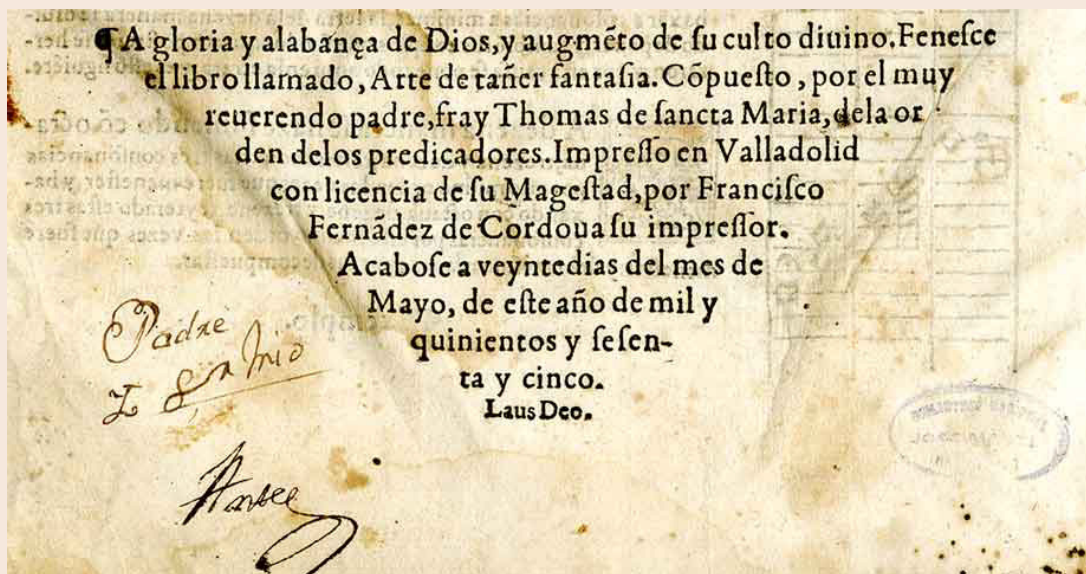 ¶A gloria y alabança de Dios,y augmẽto de ſu culto diuino.Feneſce
el libro llamado, Arte de tañer fantaſia. Cõpueſto, por el muy
reuerendo padre,fray Thomas de ſancta Maria,dela or
den delos predicadores.Impreſſo en Valladolid
con licencia de ſu Mageſtad,por Franciſco
Fernãdez de Cordoua ſu impreſſor.
Acaboſe a veyntedias del mes de
Mayo, de eſte año de mil y
quinientos y ſeſen-
ta y cinco.
Laus Deo.
Padre